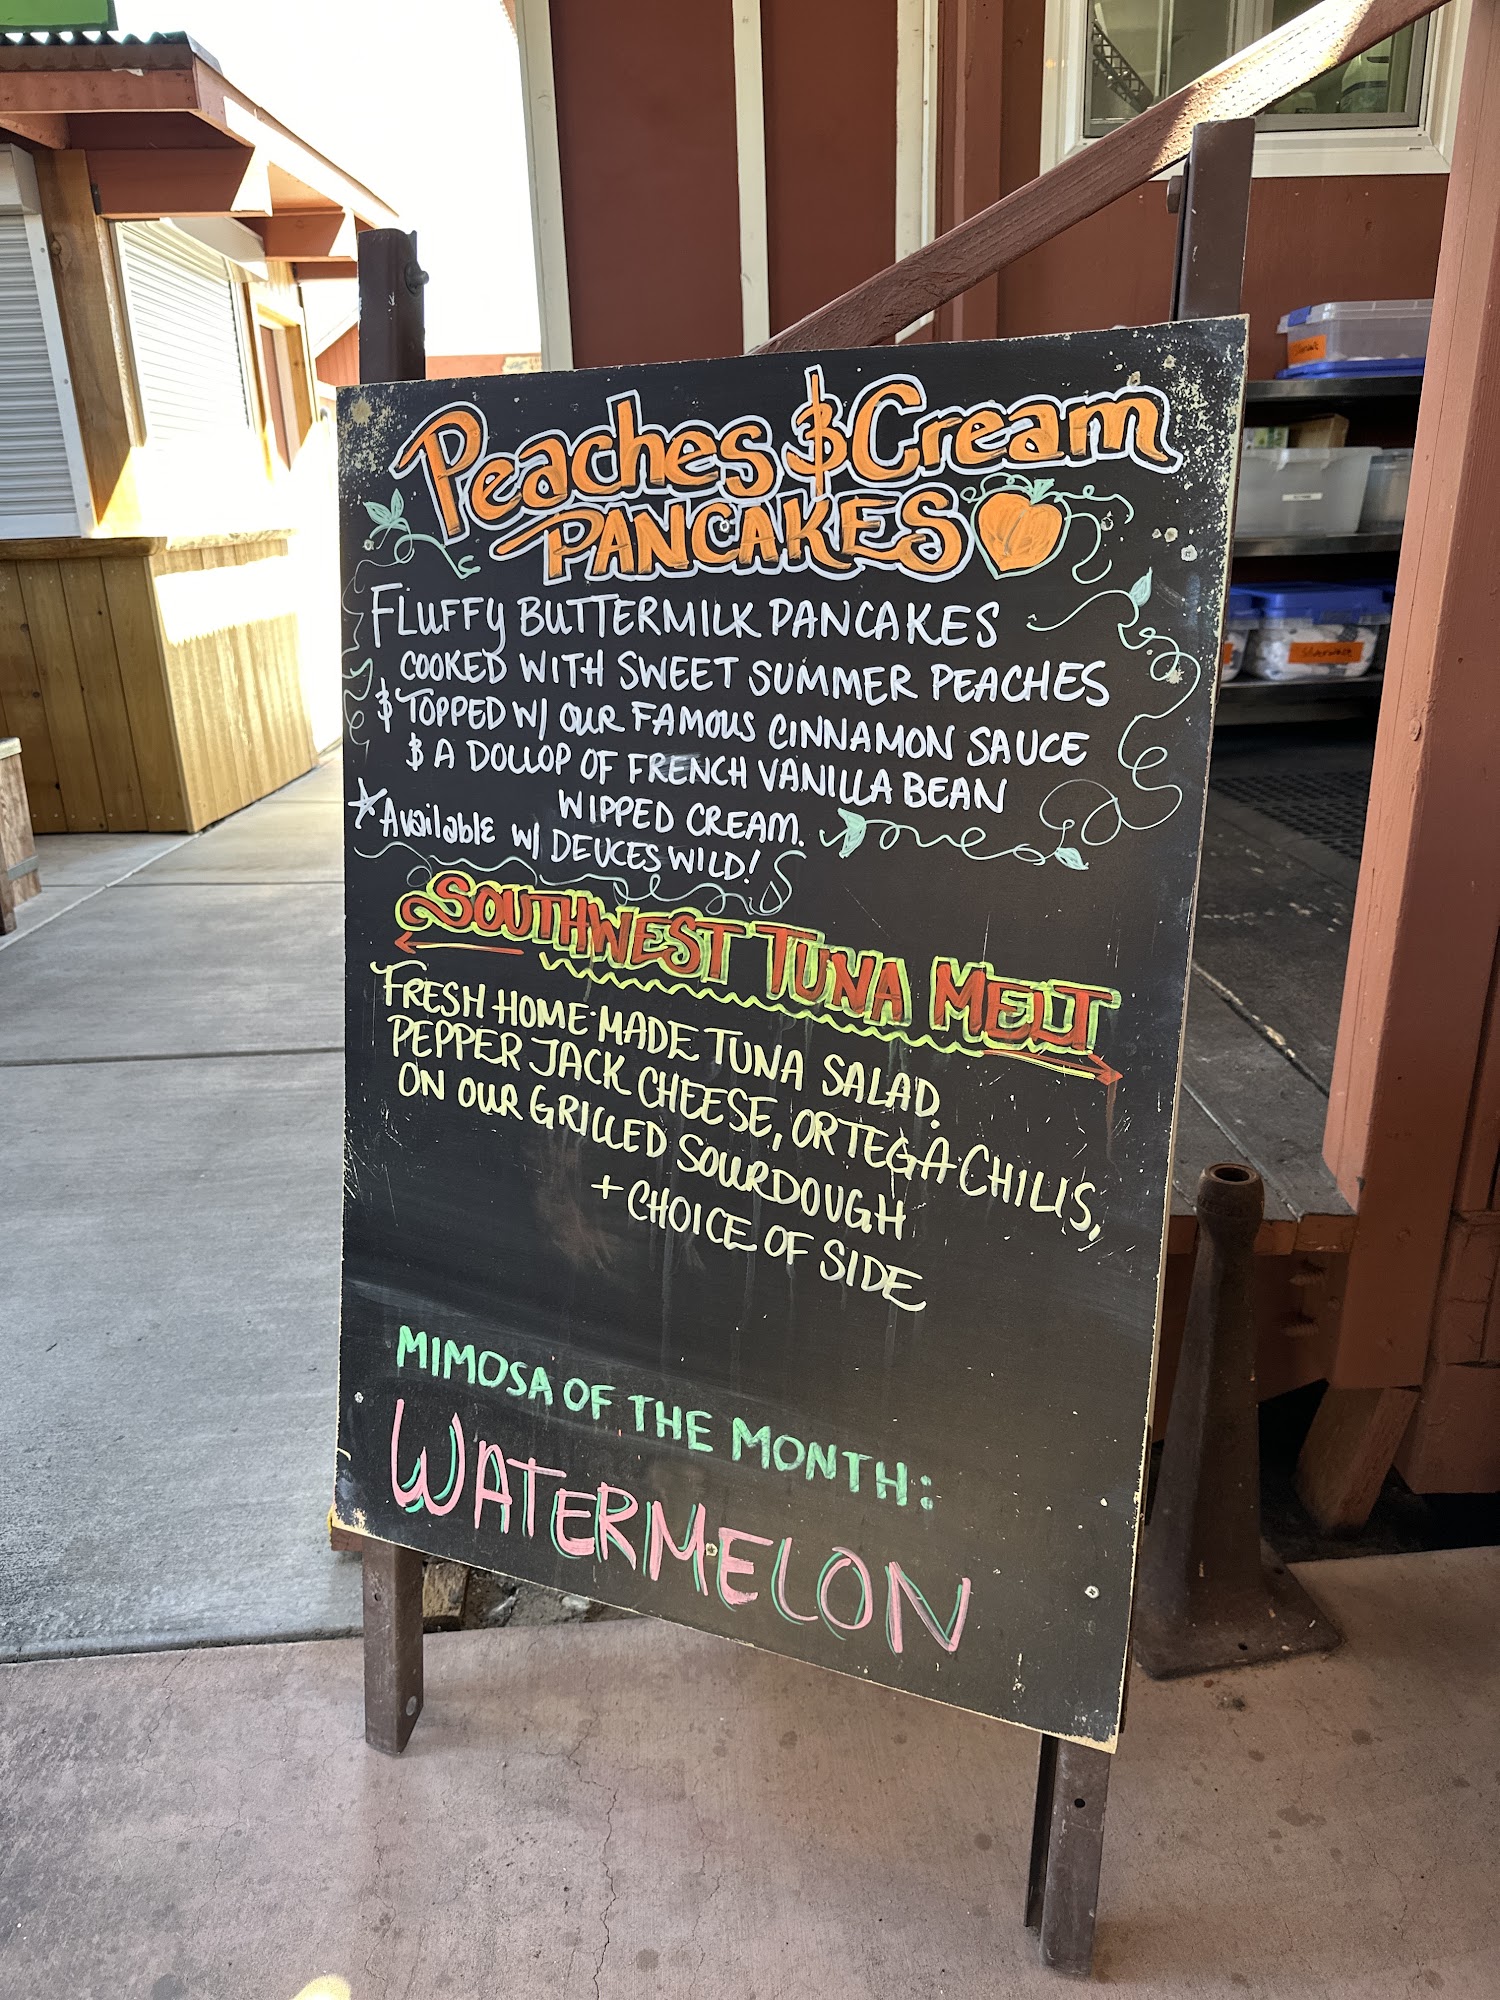 Peaches & Cream
PANCAKES
FLUFFY BUTTERMILK PANCAKES
COOKED WITH SWEET SUMMER PEACHES
& TOPPED W/ OUR FAMOUS CINNAMON SAUCE
& A DOLLOP OF FRENCH VANILLA BEAN
WIPPED CREAM.
*Available w/ DEUCES WILD!
SOUTHWEST TUNA MELT
FRESH HOME-MADE TUNA SALAD.
PEPPER JACK CHEESE, ORTEGA CHILIS,
ON OUR GRILLED SOURDOUGH
+ CHOICE OF SIDE
MIMOSA OF THE MONTH:
WATERMELON